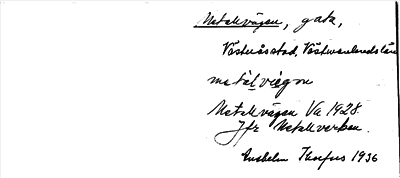 Metallvägen, gata,
Västerås stad, Västmanlands län
metàlvègen
Metallvägen Va 1928.
Jfr Metallverken.
1936